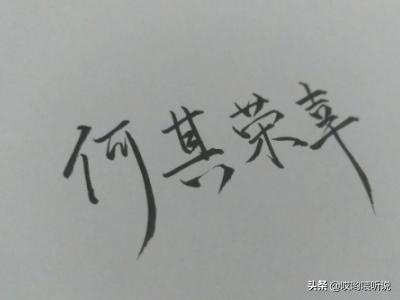 何其荣幸
头条 @哎哟喂听说